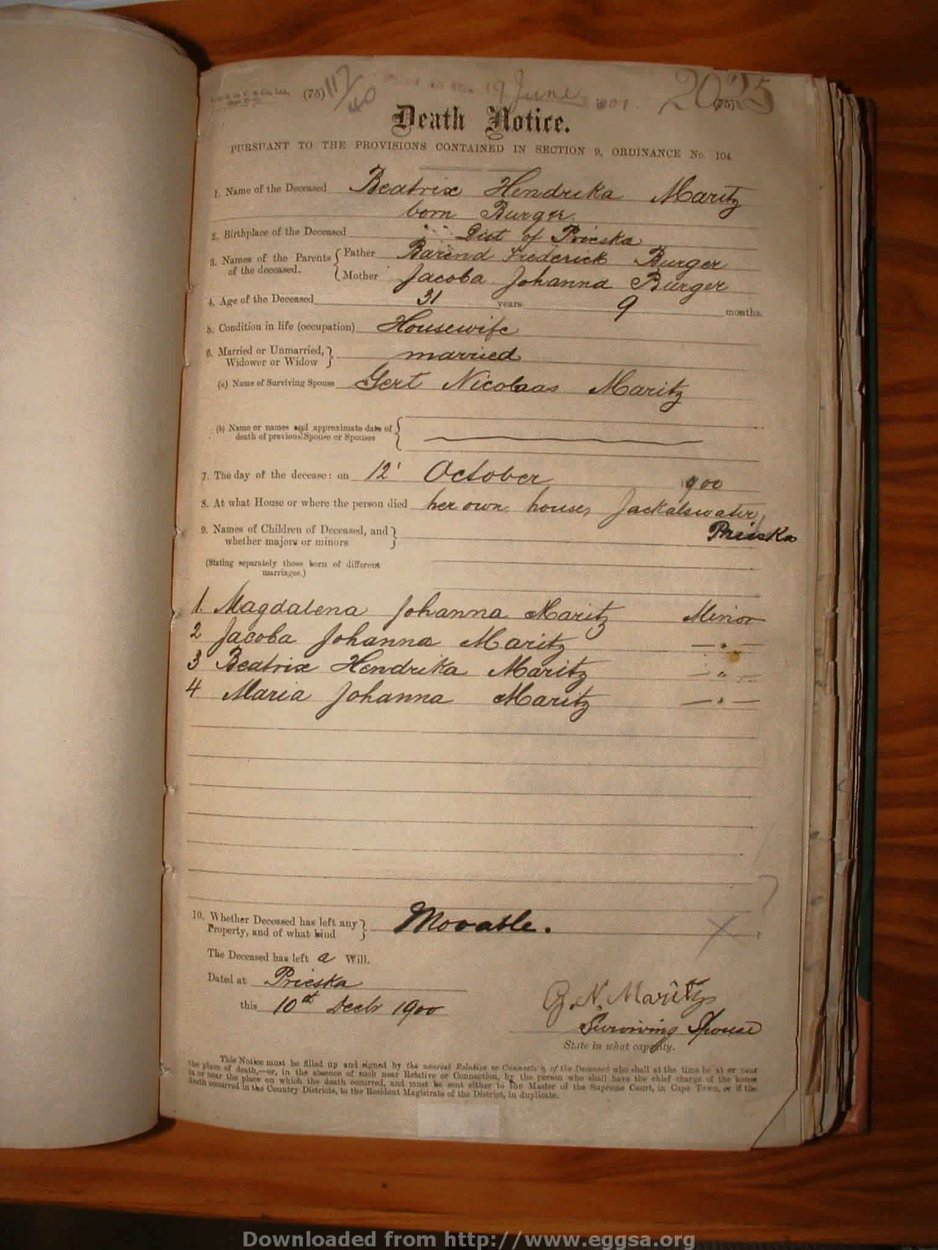 (75) 117/40 19 June 2025 (75)
Death Notice.
PURSUANT TO THE PROVISIONS CONTAINED IN SECTION 9, ORDINANCE No. 104
1. Name of the Deceased Beatrix Hendrika Maritz
born Burger
2. Birthplace of the Deceased Dist of Prieska
3. Names of the Parents of the deceased. Father Barend Frederick Burger
Mother Jacoba Johanna Burger
4. Age of the Deceased 31 years 9 months.
5. Condition in life (occupation) Housewife
6. Married or Unmarried, Widower or Widow married
(a) Name of Surviving Spouse Gert Nicolaas Maritz
(b) Name or names and approximate date of
death of previous Spouse or Spouses
7. The day of the decease: on 12' October 1900
8. At what House or where the person died her own house, Jackalswater,
Prieska
9. Names of Children of Deceased, and
whether majors or minors
(Stating separately those born of different
marriages.)
1. Magdalena Johanna Maritz Minor
2 Jacoba Johanna Maritz — " —
3 Beatrix Hendrika Maritz — " —
4. Maria Johanna Maritz — " —
10. Whether Deceased has left any
Property, and of what kind Movable.
The Deceased has left a Will.
Dated at Prieska
this 10th Decbr 1900 G. N. Maritz
Surviving Spouse
State in what capacity.
This Notice must be filled up and signed by the nearest Relative or Connection of the Deceased who shall at the time be at or near
the place of death,—or, in the absence of such near Relative or Connection, by the person who shall have the chief charge of the house
in or near the place on which the death occurred, and must be sent either to the Master of the Supreme Court, in Cape Town, or if the
death occurred in the Country Districts, to the Resident Magistrate of the District, in duplicate.
Downloaded from http://www.eggsa.org